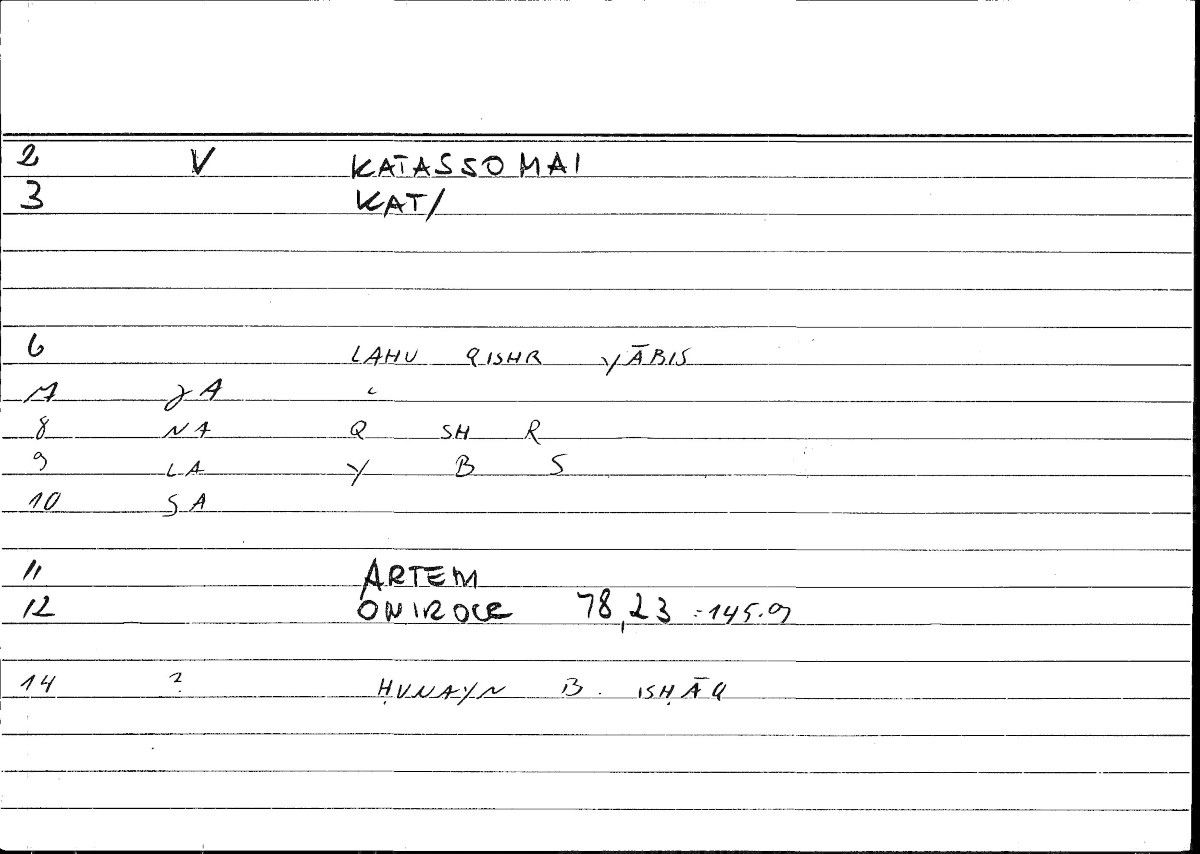 2 V KATASSOMAI
3 KAT/
6 LAHU QISHR YĀBIS
7 JA "
8 NA Q SH R
9 LA Y B S
10 SA
11 ARTEM
12 ONIROCR 78,23 :145.9
14 ? ḤUNAYN B. ISḤĀQ